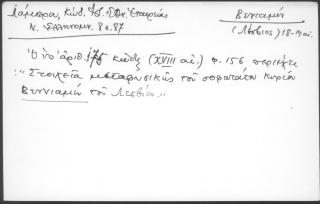 Λάμπρος, Κώδ. Ἱστ. Ἐθν. Ἑταιρείας
Ν. Ἑλληνομν. 8 σ. 87
Βενιαμὴν
(Λέσβιος) 18-19 αἰ.
Ὁ ὑπ' ἀριθ. 175 κῶδιξ (XVIII αἰ.) φ. 156 περιέχει
"Στοιχεῖα μεταφυσικῆς τοῦ σοφωτάτου κυρίου
Βενιαμὴν τοῦ Λεσβίου"